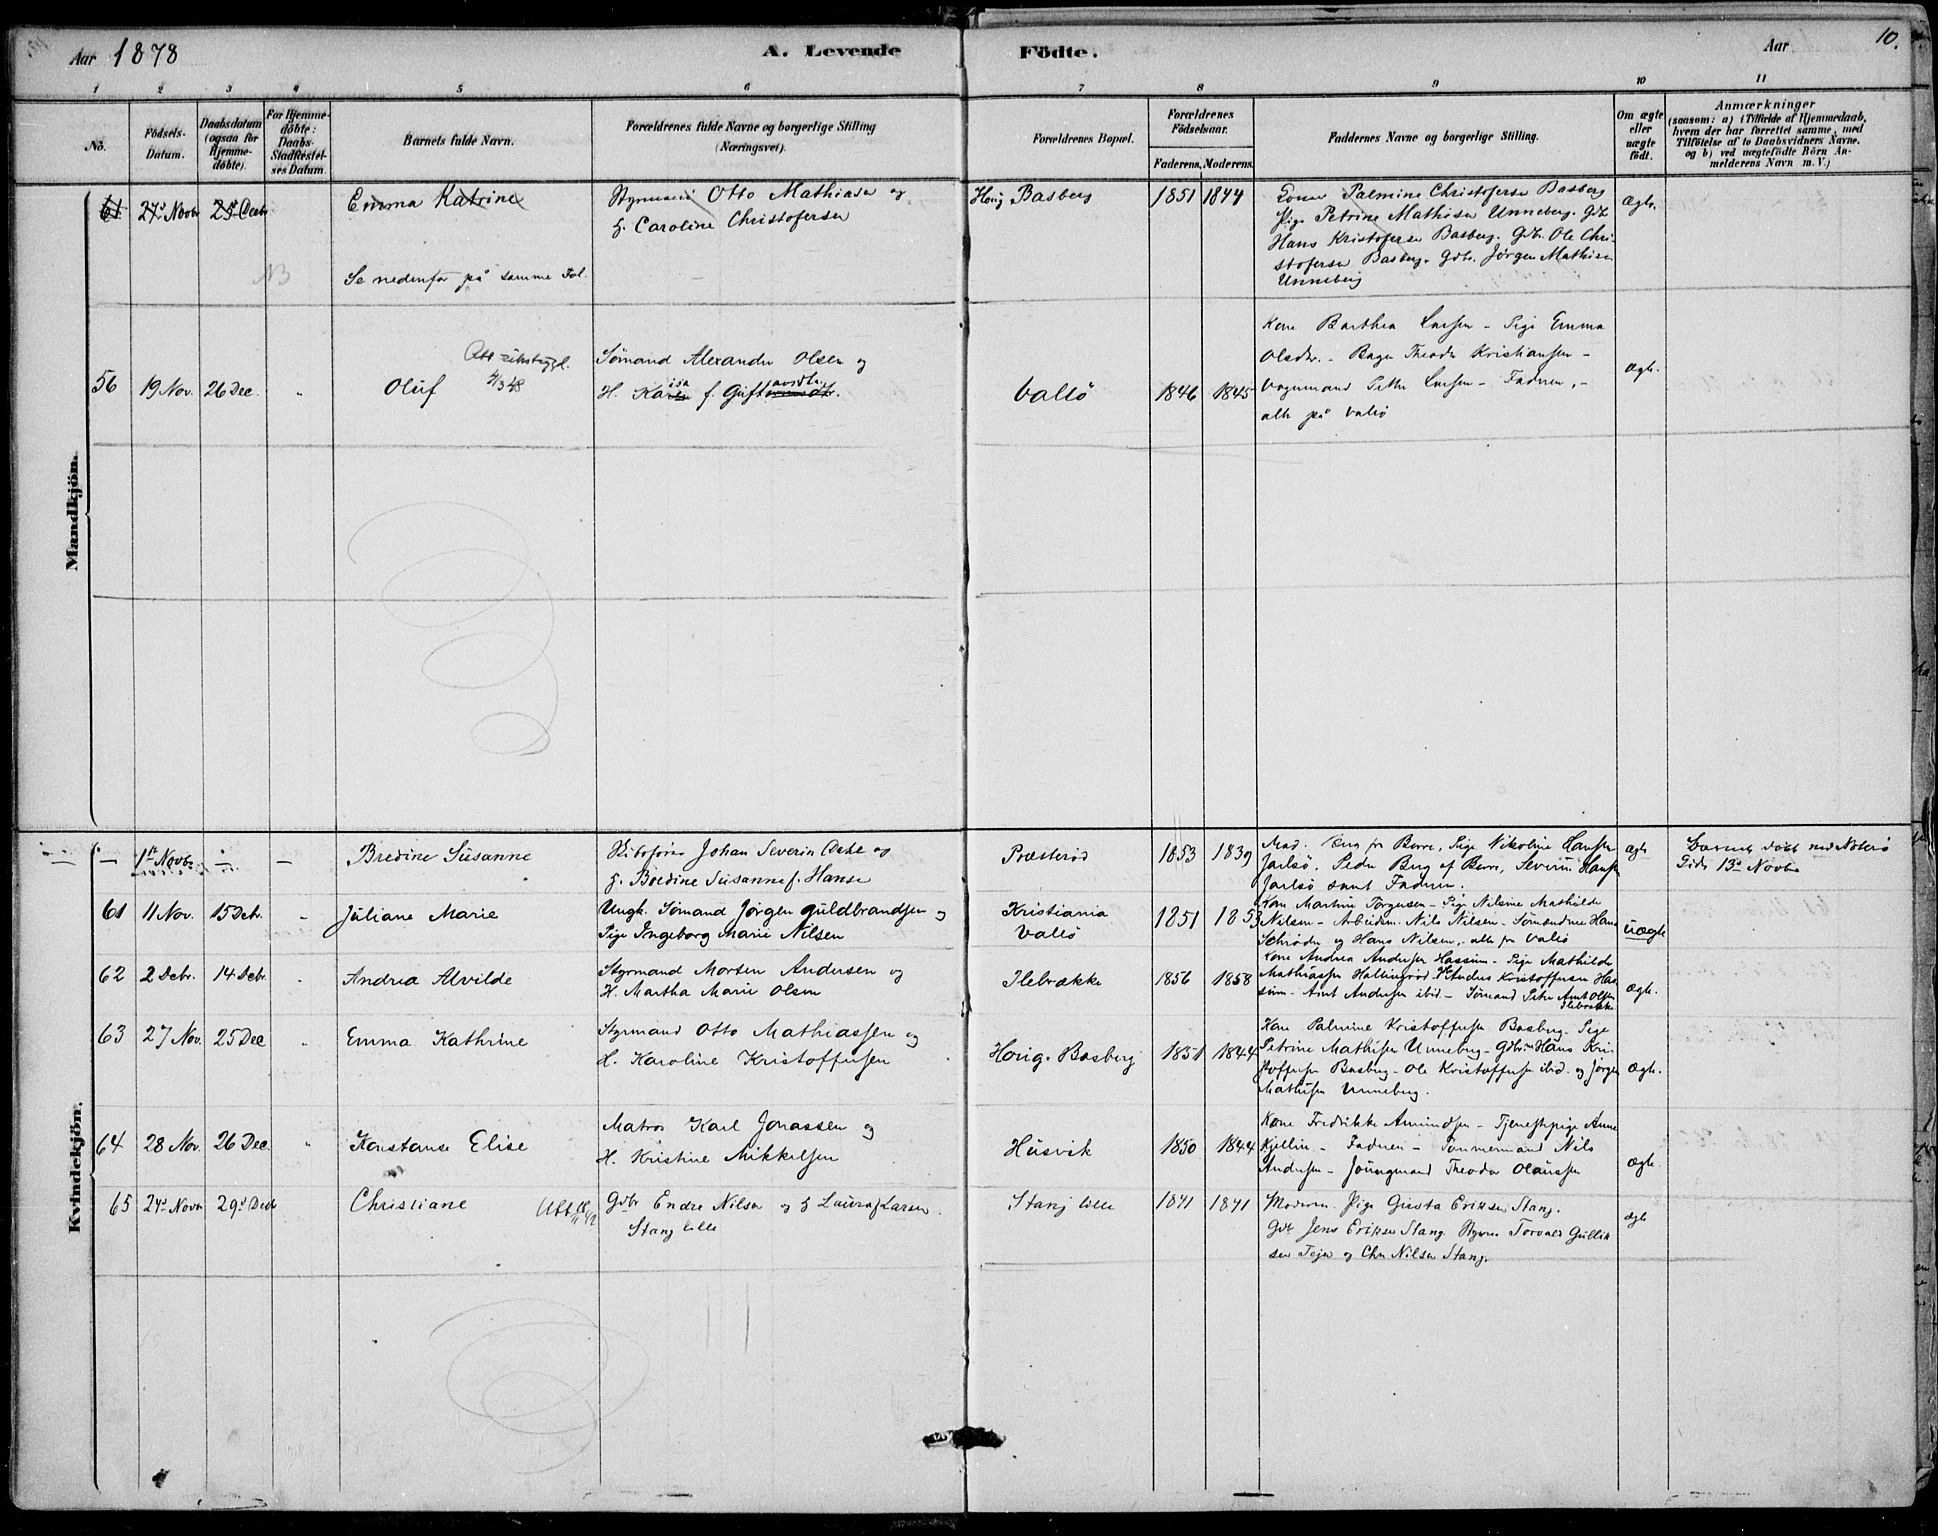 Aar 1878
A. Levende
Födte.
Aar
10.
1 2 3 4 5 6 7 8 9 10 11
No.
Födsels-
Datum.
Daabsdatum
(ogsaa for
Hjemme-
döbte).
For Hjemme-
döbte:
Daabs-
Stadfæstel-
ses Datum.
Barnets fulde Navn.
Forældrenes fulde Navne og borgerlige Stilling
(Næringsvei).
Forældrenes Bopæl.
Forældrenes
Födselsaar.
Faderens. Moderens.
Faddernes Navne og borgerlige Stilling.
Om ægte
eller
uægte
födt.
Anmærkninger
(saasom: a) i Tilfælde af Hjemmedaab,
hvem der har forrettet samme, med
Tilföielse af to Daabsvidners Navne.
og b) ved uægtefödte Börn An-
melderens Navn m. V.)
Mandkjön.
61 27de Novbr 25de Decbr
Emma Katrine
Styrmand Otto Mathiasen og
H. Caroline Christofersen
Basberg
1851 1844
Palmine Christofersen Basberg
Pige Petrine Mathisen Unneberg. Gdb.
Hans Kristofersen Basberg. Gdbr. Ole Chri-
stofersen Basberg. Gdbr. Jörgen Mathisen
Unneberg
Ægte.
NB
Se nedenfor på samme Fol.
56 19 Nov. 26 Dec. "
Oluf
4/3 48
Sömand Alexander Olsen og
H. Karen isa f. Gust avsdtr.
Vallö
1846 1845
Kone Barthea Larsen - Pige Emma
Olsdtr. - Bager Theodor Kristiansen -
Vognmand Petter Larsen - Faderen, -
alle på Vallö
Ægte.
Kvindekjön.
— 1ste Novbr — —
Bredine Susanne
Johan Severin og
H. Boedine Susanne f. Hansen
Præsteröd
1853 1839
Mad. Berg fra Borre, Pige Nikoline Hansen
Jarlsö. Peder Berg af Borre, Severin Hansen
Jarlsö samt Faderen.
Ægte
Barnet döbt ved Nöterö
Kirke 13de Novbr
61 11 Nov. 15 Decbr. "
Juliane Marie
Ungk. Sömand Jörgen Guldbrandsen og
Pige Ingeborg Marie Nilsen
Kristiania
Vallö
1851 1853
Kone Martine Torgersen - Pige Nilsine Mathilde
Nilsen - Arbeidsm. Nils Nilsen - Sömændene Hans
Schröder og Hans Nilsen, - alle fra Vallö
Uægte
62 2 Decbr. 14 Decbr. "
Andrea Alvilde
Styrmand Morten Andersen og
H. Martha Marie Olsen
Ilebrække
1856 1858
Kone Andrea Andersen Hassum - Pige Mathilde
Mathiassen Hallingröd - Anders Kristoffersen Has-
sum - Arnt Andersen ibid - Sömand Petter Arnt Olsen
Ilebrække
Ægte.
63 27 Nov. 25 Dec "
Emma Kathrine
Styrmand Otto Mathiassen og
H. Karoline Kristoffersen
Horig. Basberg
1851 1844
Kone Palmine Kristoffersen Basberg - Pige
Petrine Mathisen Unneberg - Gdbr. Hans Kri-
stoffersen Basberg - Ole Kristoffersen ibid. og Jörgen
Mathisen Unneberg.
Ægte.
64 28 Nov. 26 Dec. "
Konstanse Elise
Matros Karl Jonassen og
H. Kristine Mikkelsen
Husvik
1850 1844
Kone Fredrikke Amundsen - Tjenestepige Anne
Kjellin - Faderen - Tømmermand Nils
Andersen - Joungmand Theodor Olaussen
Ægte
65 24de Novbr 29de Decbr
Christiane
Gdbr Endre Nilsen og H Laura f Larsen.
Stang lille
Stang lille
1841 1841
Moderen. Pige Gusta Eriksen Stang.
Gdb Jens Eriksen Stang. Styrm. Torvald Gullik
sen Teje og Chr Nilsen Stang.
ægte